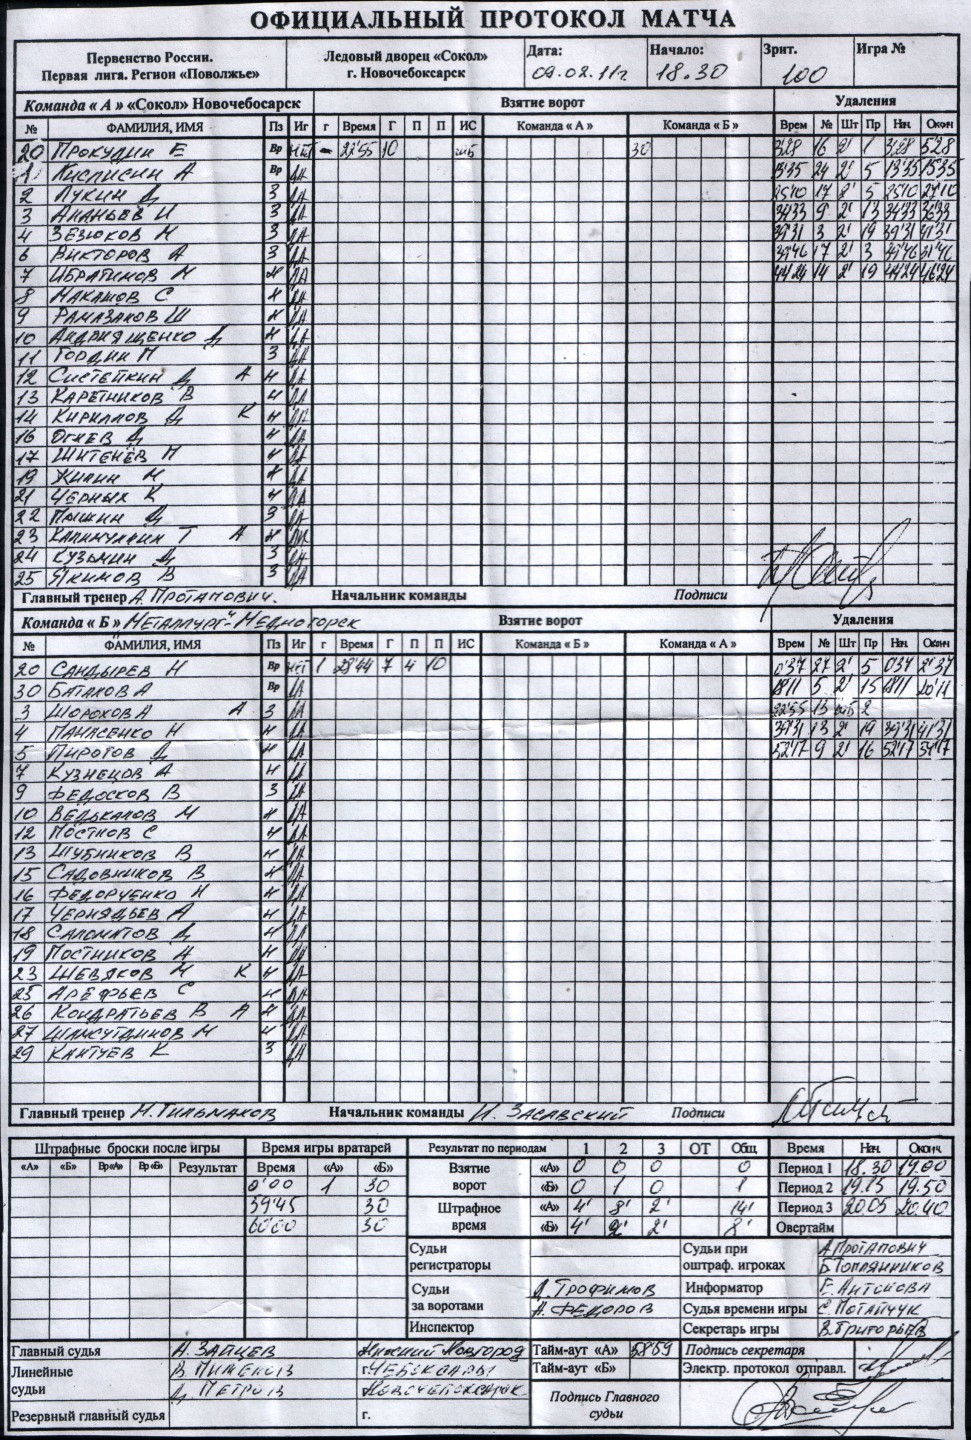 ОФИЦИАЛЬНЫЙ ПРОТОКОЛ МАТЧА
Первенство России.
Первая лига. Регион «Поволжье»
Ледовый дворец «Сокол»
г. Новочебоксарск
Дата:
09.02.11г
Начало:
18.30
Зрит.
100
Игра №
Команда « А » «Сокол» Новочебосарск Взятие ворот Удаления
№ ФАМИЛИЯ, ИМЯ Пз Иг г Время Г П П ИС Команда « А » Команда « Б » Врем № Шт Пр Нач. Оконч
20 Прокудин Е Вр нет - 22'55 10 шб 30 3'28 16 2' 1 3'28 5'28
1 Кислисин А Вр да 13'35 24 2' 5 13'35 15'35
2 Лукин Д З да 25'10 17 2' 5 25'10 27'10
3 Ананьев И З да 34'33 9 2' 13 34'33 36'33
4 Зезюков М З да 39'31 3 2' 19 39'31 41'31
6 Викторов А З да 39'46 17 2' 3 39'46 41'46
7 Ибрагимов М Н да 44'24 14 2' 19 44'24 46'24
8 Макамов С Н да
9 Рамазанов Ш Н да
10 Андриященко Д Н да
11 Гордин П З да
12 Систейкин Д А Н да
13 Каретников В Н да
14 Кириллов Д К Н да
16 Огнев Д Н да
17 Шитенёв П Н да
19 Жилин М Н да
21 Черных К Н да
22 Пышин Д З да
23 Калимуллин Т А Н да
24 Кузьмин Д З да
25 Якимов В З да
Главный тренер А. Протапович. Начальник команды Подписи
Команда « Б » "Металлург" Медногорск Взятие ворот Удаления
№ ФАМИЛИЯ, ИМЯ Пз Иг г Время Г П П ИС Команда « Б » Команда « А » Врем № Шт Пр Нач Оконч
20 Сандырев Н Вр нет 1 28'44 7 4 10 0'37 27 2' 5 0'37 2'37
30 Баталов А Вр да 18'11 5 2' 15 18'11 20'11
3 Шорохов А А З да 22'55 13 шб 2
4 Панасенко Н Н да 39'31 13 2' 19 39'31 41'31
5 Пиротов Д Н да 52'17 9 2' 16 52'17 54'17
7 Кузнецов А Н да
9 Федосков В З да
10 Ведькалов М Н да
12 Постнов С Н да
13 Шубников В Н да
15 Садовников В Н да
16 Федорченко Н Н да
17 Чернядьев А Н да
18 Саломатов Д Н да
19 Постников А Н да
23 Шевяков М К Н да
25 Арефьев С Н да
26 Кондратьев В А Н да
27 Шамсутдинов М Н да
29 Кантуев К З да
Главный тренер Н. Тильмаков Начальник команды И. Засавский Подписи
Штрафные броски после игры Время игры вратарей Результат по периодам 1 2 3 ОТ Общ. Время Нач. Оконч.
«А» «Б» Вр«А» Вр«Б» Результат Время «А» «Б» Взятие ворот «А» 0 0 0 0 Период 1 18.30 19.00
0'00 1 30 «Б» 0 1 0 1 Период 2 19.15 19.50
39'45 30 Штрафное время «А» 4' 8' 2' 14' Период 3 20.05 20.40
60'00 30 «Б» 4' 2' 2' 8' Овертайм
Судьи регистраторы Судьи при оштраф. игроках А. Протапович
Б. Топлянников
Судьи за воротами Д. Трофимов Информатор Е. Антонова
А. Федоров Судья времени игры С. Потайчук
Инспектор Секретарь игры В. Григорьев
Главный судья А. Зайцев Нижний Новгород Тайм-аут «А» 58'59 Подпись секретаря
Линейные судьи В. Пименов г. Чебоксары Тайм-аут «Б» Электр. протокол отправл.
Д. Петров Новочебоксарск
Подпись Главного судьи
Резервный главный судья г.